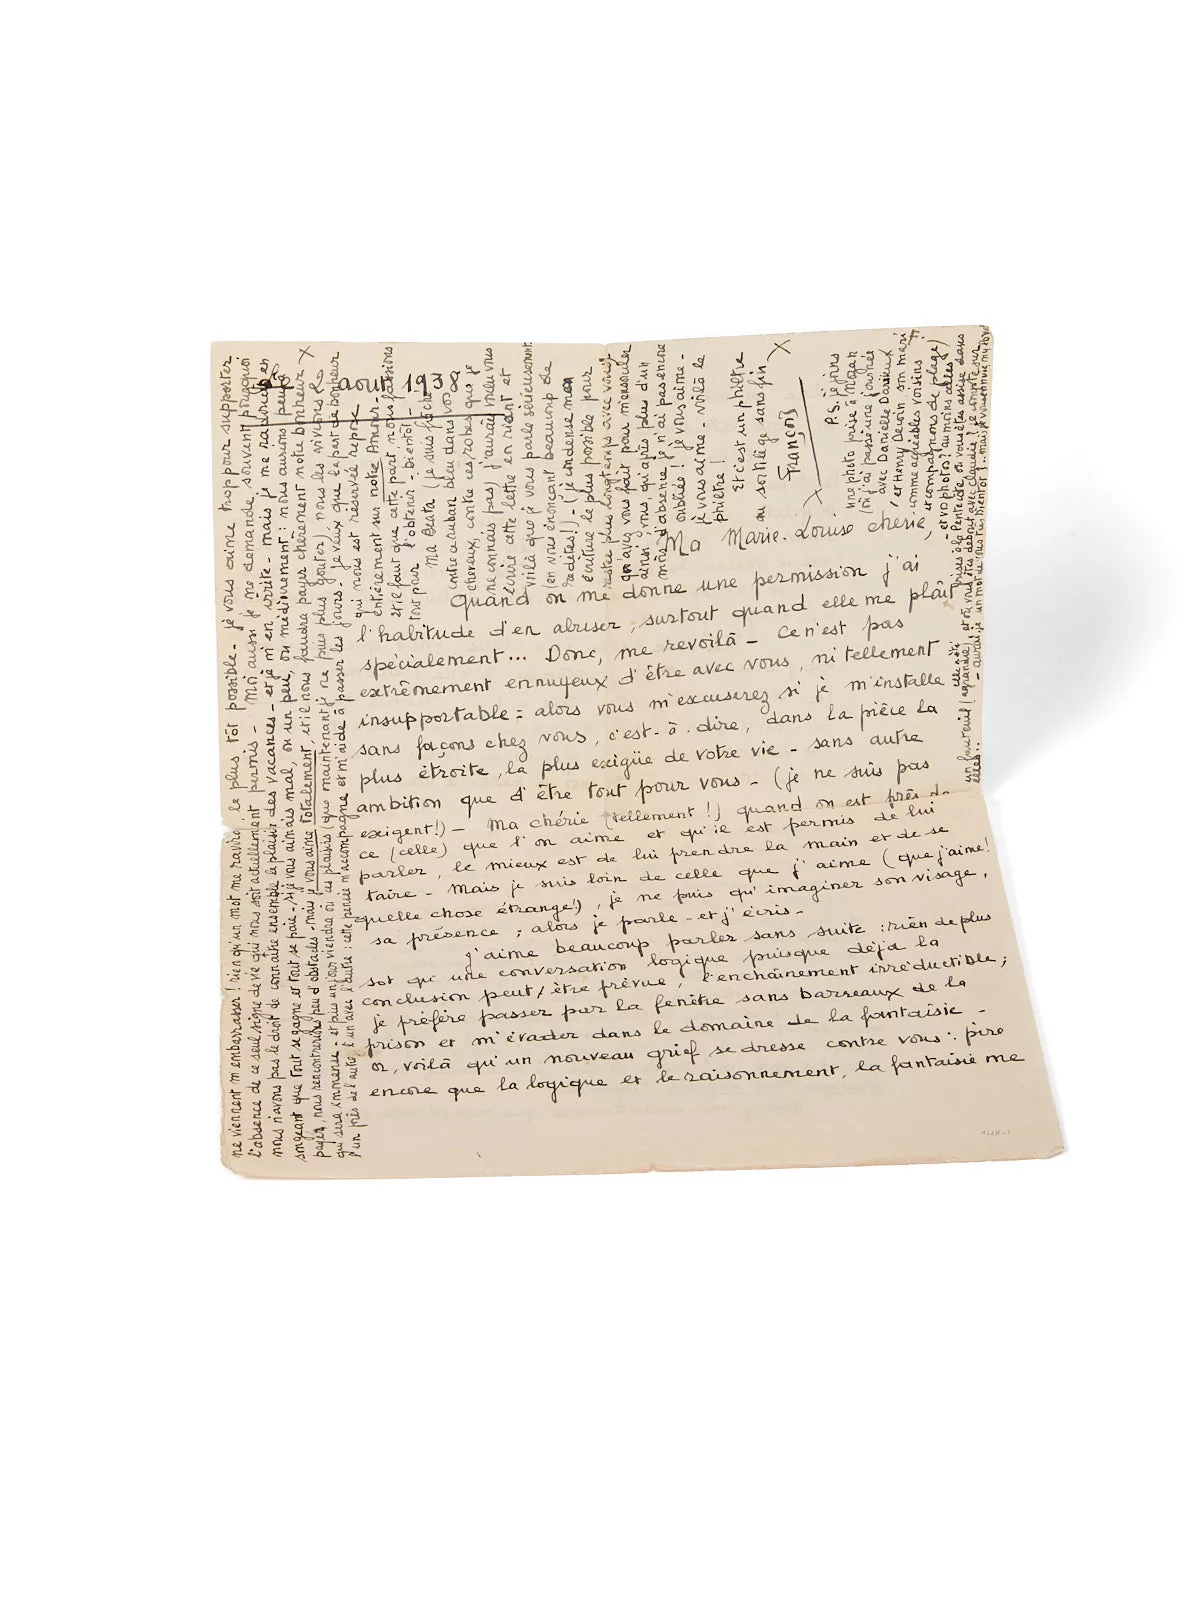 août 1938
Ma Marie-Louise chérie,
Quand on me donne une permission j'ai
l'habitude d'en abuser, surtout quand elle me plaît
spécialement... Donc, me revoilà - Ce n'est pas
extrêmement ennuyeux d'être avec vous, ni tellement
insupportable : alors vous m'excuserez si je m'installe
sans façons chez vous, c'est-à-dire, dans la pièce la
plus étroite, la plus exigüe de votre vie - sans autre
ambition que d'être tout pour vous - (je ne suis pas
exigent!) - Ma chérie (tellement!) quand on est près de
ce (celle) que l'on aime et qu'il est permis de lui
parler, le mieux est de lui prendre la main et de se
taire - Mais je suis loin de celle que j'aime (que j'aime!
quelle chose étrange!), je ne puis qu'imaginer son visage,
sa présence ; alors je parle - et j'écris -
J'aime beaucoup parler sans suite : rien de plus
sot qu'une conversation logique puisque déjà la
conclusion peut être prévue, l'enchaînement irréductible ;
je préfère passer par la fenêtre sans barreaux de la
prison et m'évader dans le domaine de la fantaisie -
or, voilà qu'un nouveau grief se dresse contre vous : pire
encore que la logique et le raisonnement, la fantaisie me
ne viennent m'embarrasser ! rien qu'un mot me ravira, le plus tôt possible - je vous aime trop pour supporter
l'absence de ce seul signe de vie qui nous soit actuellement permis - Moi aussi je me demande souvent pourquoi
nous n'avons pas le droit de connaître ensemble le plaisir des vacances - et je m'en irrite - mais je me radoucis en
songeant que tout se gagne et tout se paie : si je vous aimais mal, ou un peu, ou médiocrement : nous aurions peu à
payer, nous rencontrerions peu d'obstacles - Mais je vous aime totalement, et il nous faudra payer chèrement notre bonheur
qui sera immense - et puis un jour viendra où ces plaisirs (que maintenant je ne puis plus goûter) nous les vivrons
l'un près de l'autre, l'un avec l'autre : cette pensée m'accompagne et m'aide à passer les jours. Je veux que la part de bonheur
qui nous est réservée repose
entièrement sur notre Amour -
et il faut que cette part, nous fassions
tout pour l'obtenir - bientôt -
Ma Beata (je suis fâché
contre ce ruban bleu dans vos
cheveux, contre ces robes que je
ne connais pas) j'aurais voulu vous
écrire cette lettre en riant et
voilà que je vous parle sérieusement
(en vous énonçant beaucoup de
redites!) - (je condense mon
écriture le plus possible pour
rester plus longtemps avec vous)
qu'avez vous fait pour m'ensorceler
ainsi, vous, qu'après plus d'un
mois d'absence je n'ai pas encore
oubliée ! je vous aime -
je vous aime - voilà le
philtre !
Et c'est un philtre
au sortilège sans fin
François
P.S. je joins
une photo prise à
(où j'ai passé une journée
avec Danielle Darieux
et Henry Decoin son mari
comme agréables voisins
et compagnons de plage)
- et vos photos ? au moins celles
prises à la Pentecôte, où vous êtes assise dans
un fauteuil (agrandie) et où vous êtes debout avec Claudie ! je compte sur
elles..